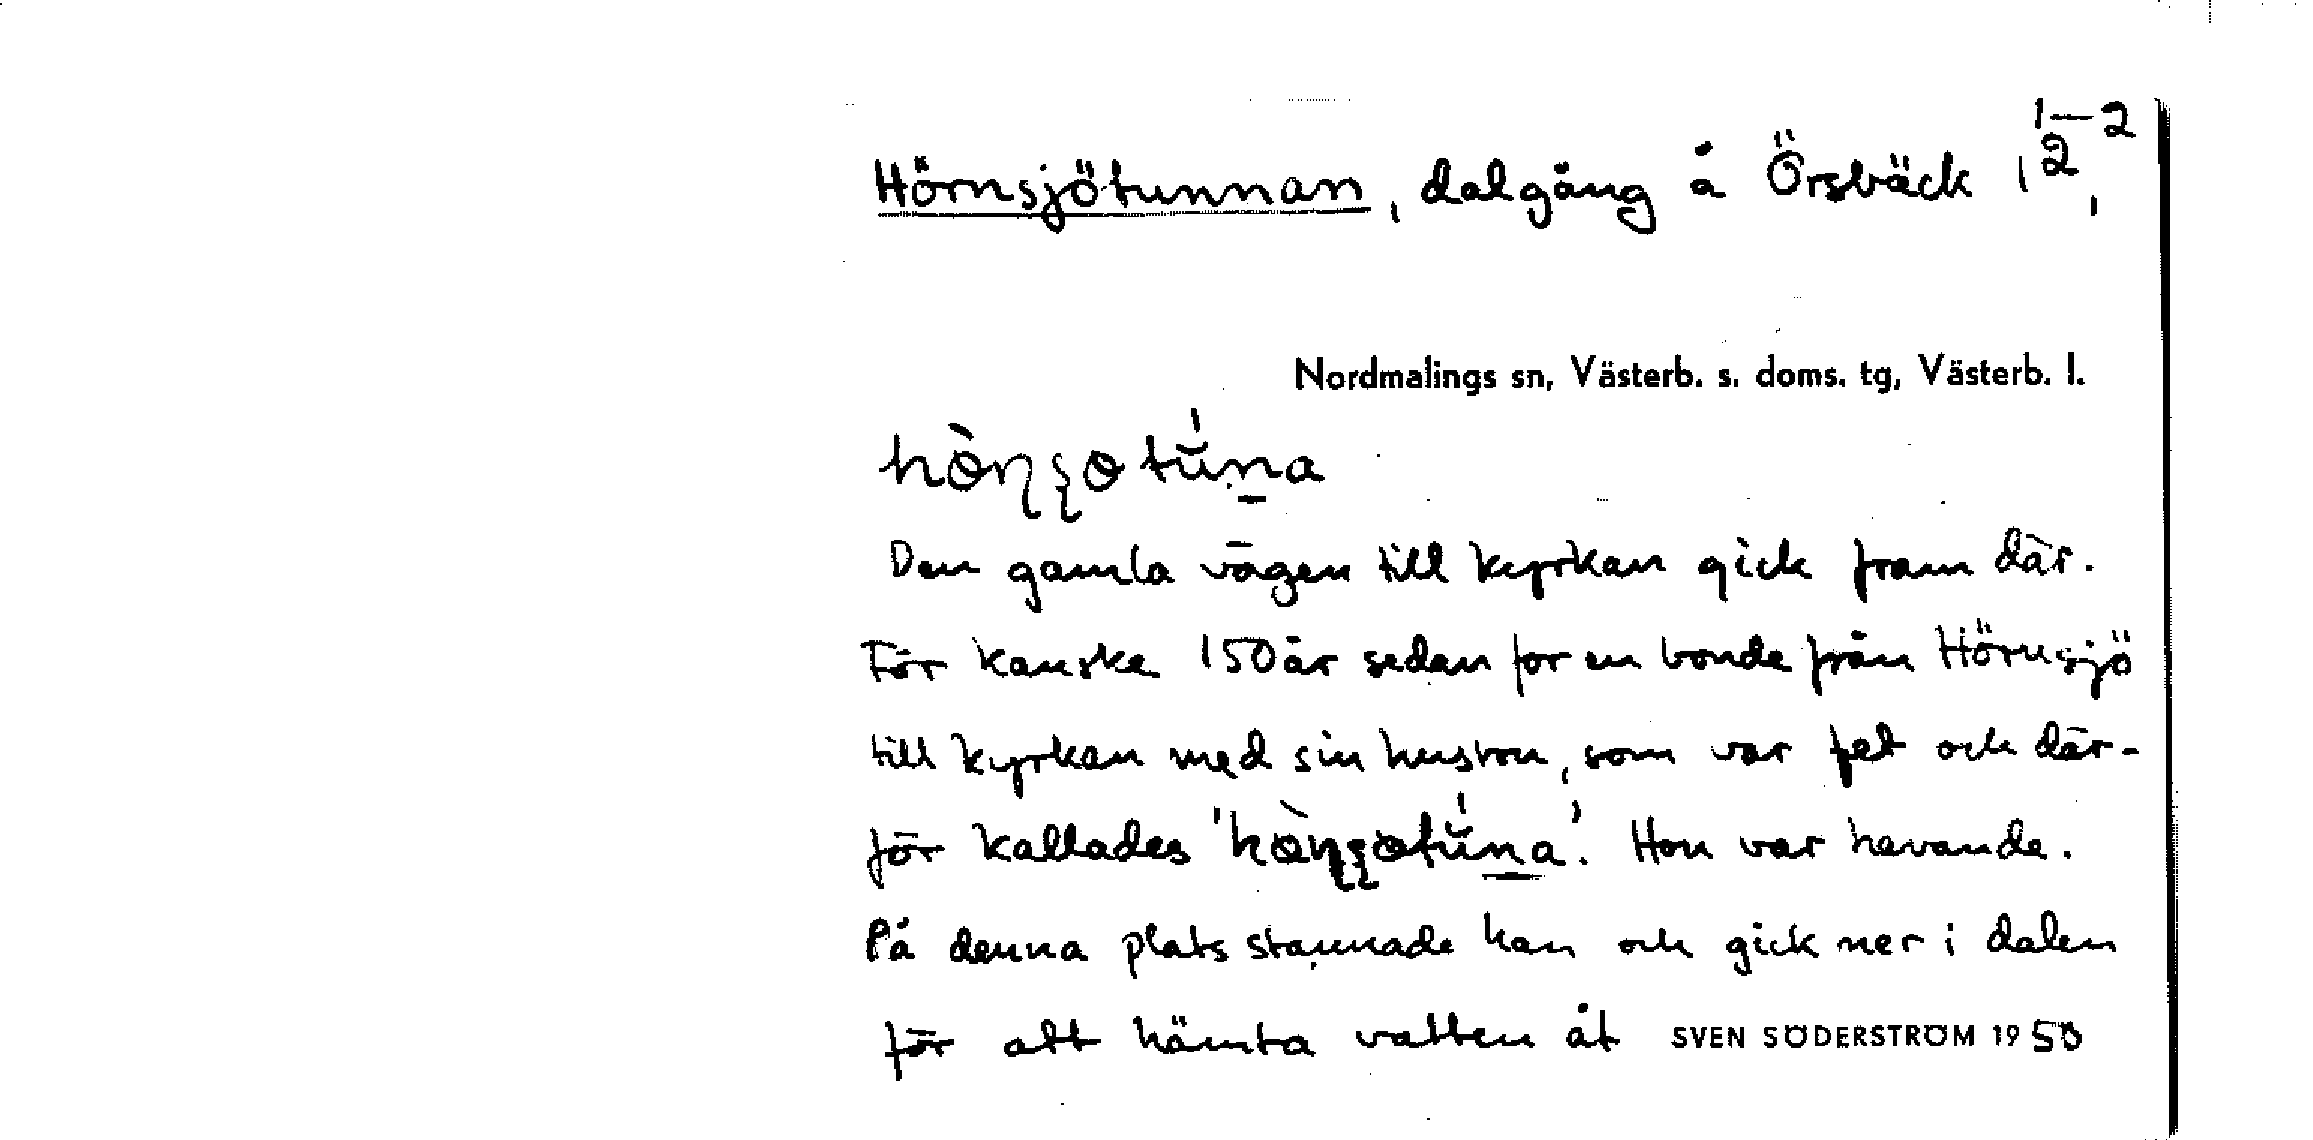 1–2
Hörnsjötunnan, dalgång å Örsbäck 1 2,
Nordmalings sn, Västerb. s. doms. tg, Västerb. l.
Den gamla vägen till kyrkan gick fram där.
För kanske 150 år sedan for en bonde från Hörnsjö
till kyrkan med sin hustru, som var fet och där-
för kallades 'hɵ̀ɳʂɵtŭ́na'. Hon var havande.
På denna plats stannade han och gick ner i dalen
för att hämta vatten åt SVEN SÖDERSTRÖM 1950